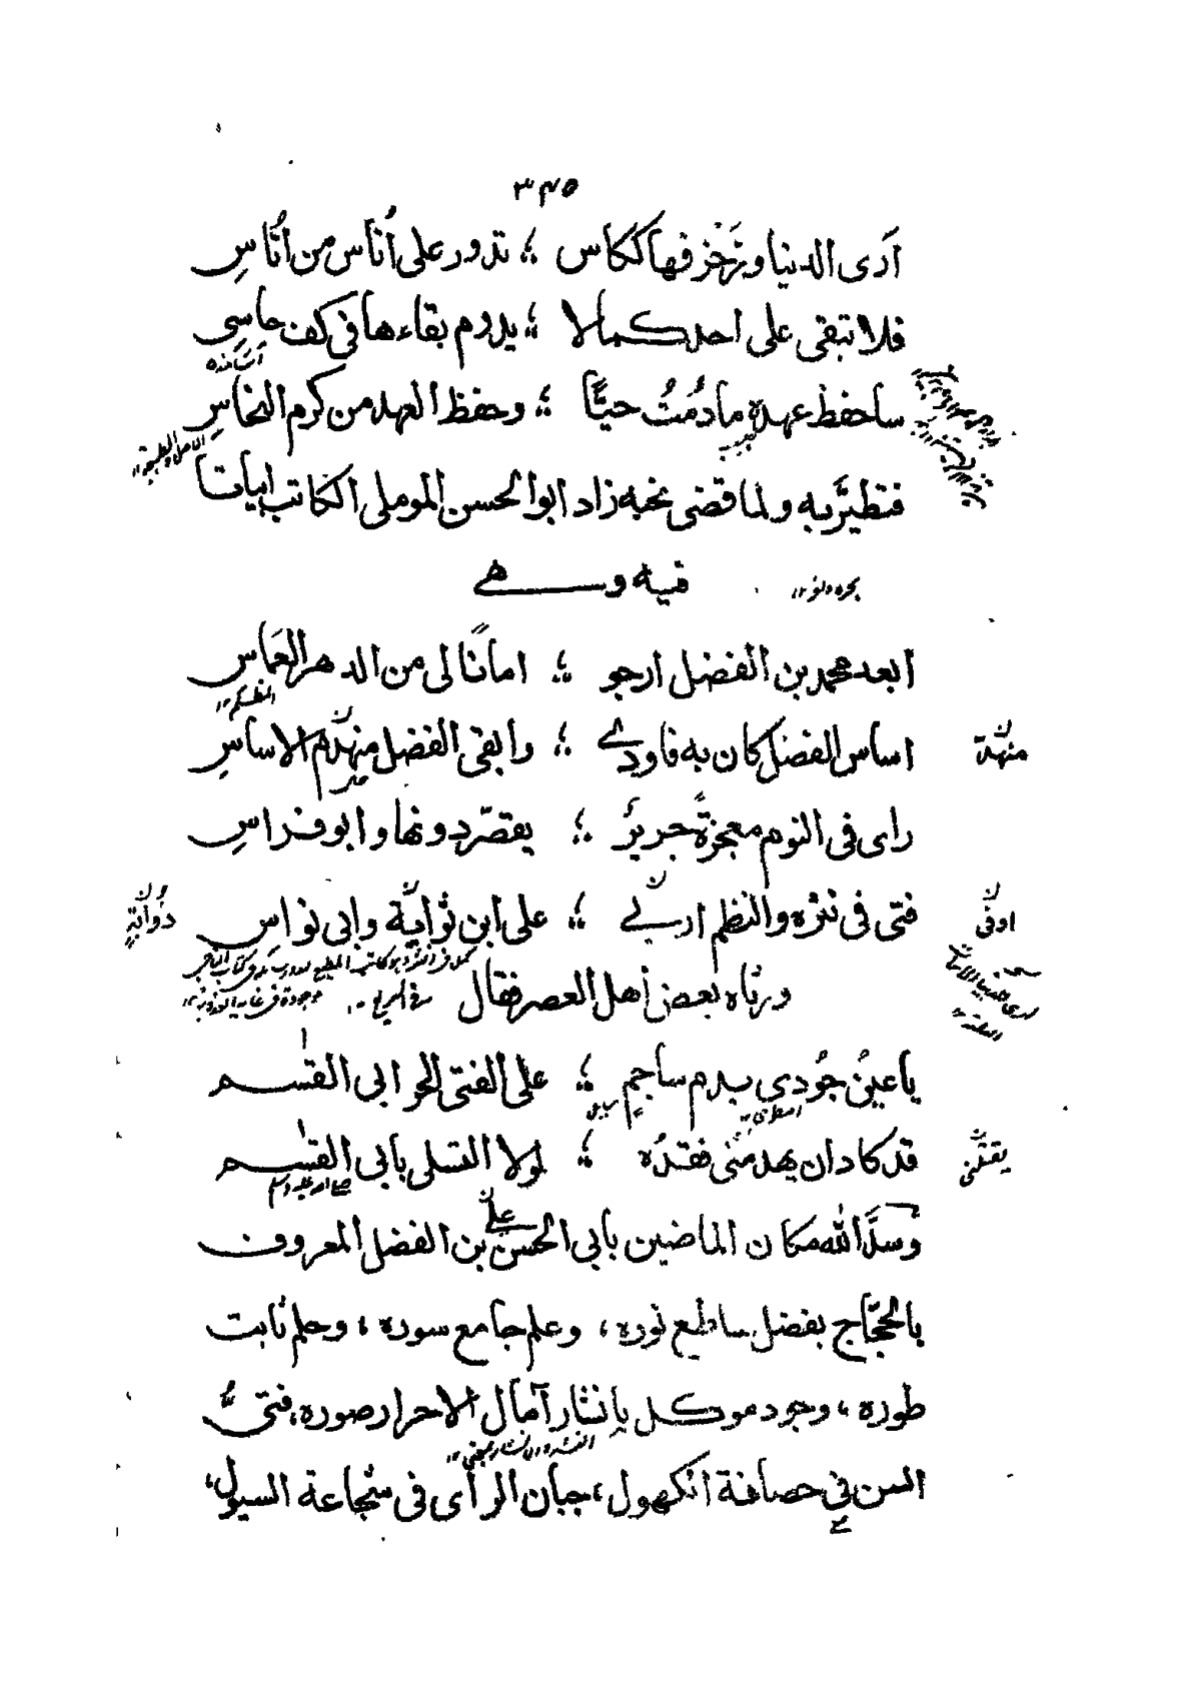 ٣٤٥
أَرى الدنيا وزَخرفها ككاس ؛ تدور على أُناس من أُناسِ
فلا تبقى على احد كما لا ؛ يدوم بقاءها فى كف حاسِى
ساحفظ عهده ما دُمْتُ حيًّا ؛ وحفظ العهد من كرم النحاسِ
فتطيَّر به ولما قضى نحبه زاد ابوالحسن الموملى الكاتب ابياتا
فيه وهى
ابعد محمد بن الفضل ارجو ؛ امانًا لى من الدهر العَماسِ
منهدّة
اساس الفضل كان به فاودى ؛ وابقى الفضل منهدّم الاساسِ
راى فى النوم معجزةً جريرٌ ؛ يقصّر دونها وابو فراسِ
اوفى
فتى فى نثره والنظم اربى ؛ على ابن ثوابة وابى نواسِ
ورثاه بعض أهل العصر فقال
يا عينُ جُودى بدم ساجم ؛ على الفتى الحر ابى القٰسم
قد كاد ان يهدمنى فقدُه ؛ لولا التسلى بابى القٰسم
وسدَّ الله مكان الماضين بابى الحسن على بن الفضل المعروف
بالحجّاج بفضل ساطع نوره، وعلم جامع سوره، وحلم ثابت
طوره، وجود موكل بإنشار آمال الاحرار صوره، فتىُّ
السن فى حصافة الكهول، جبان الرأى فى شجاعة السيول،